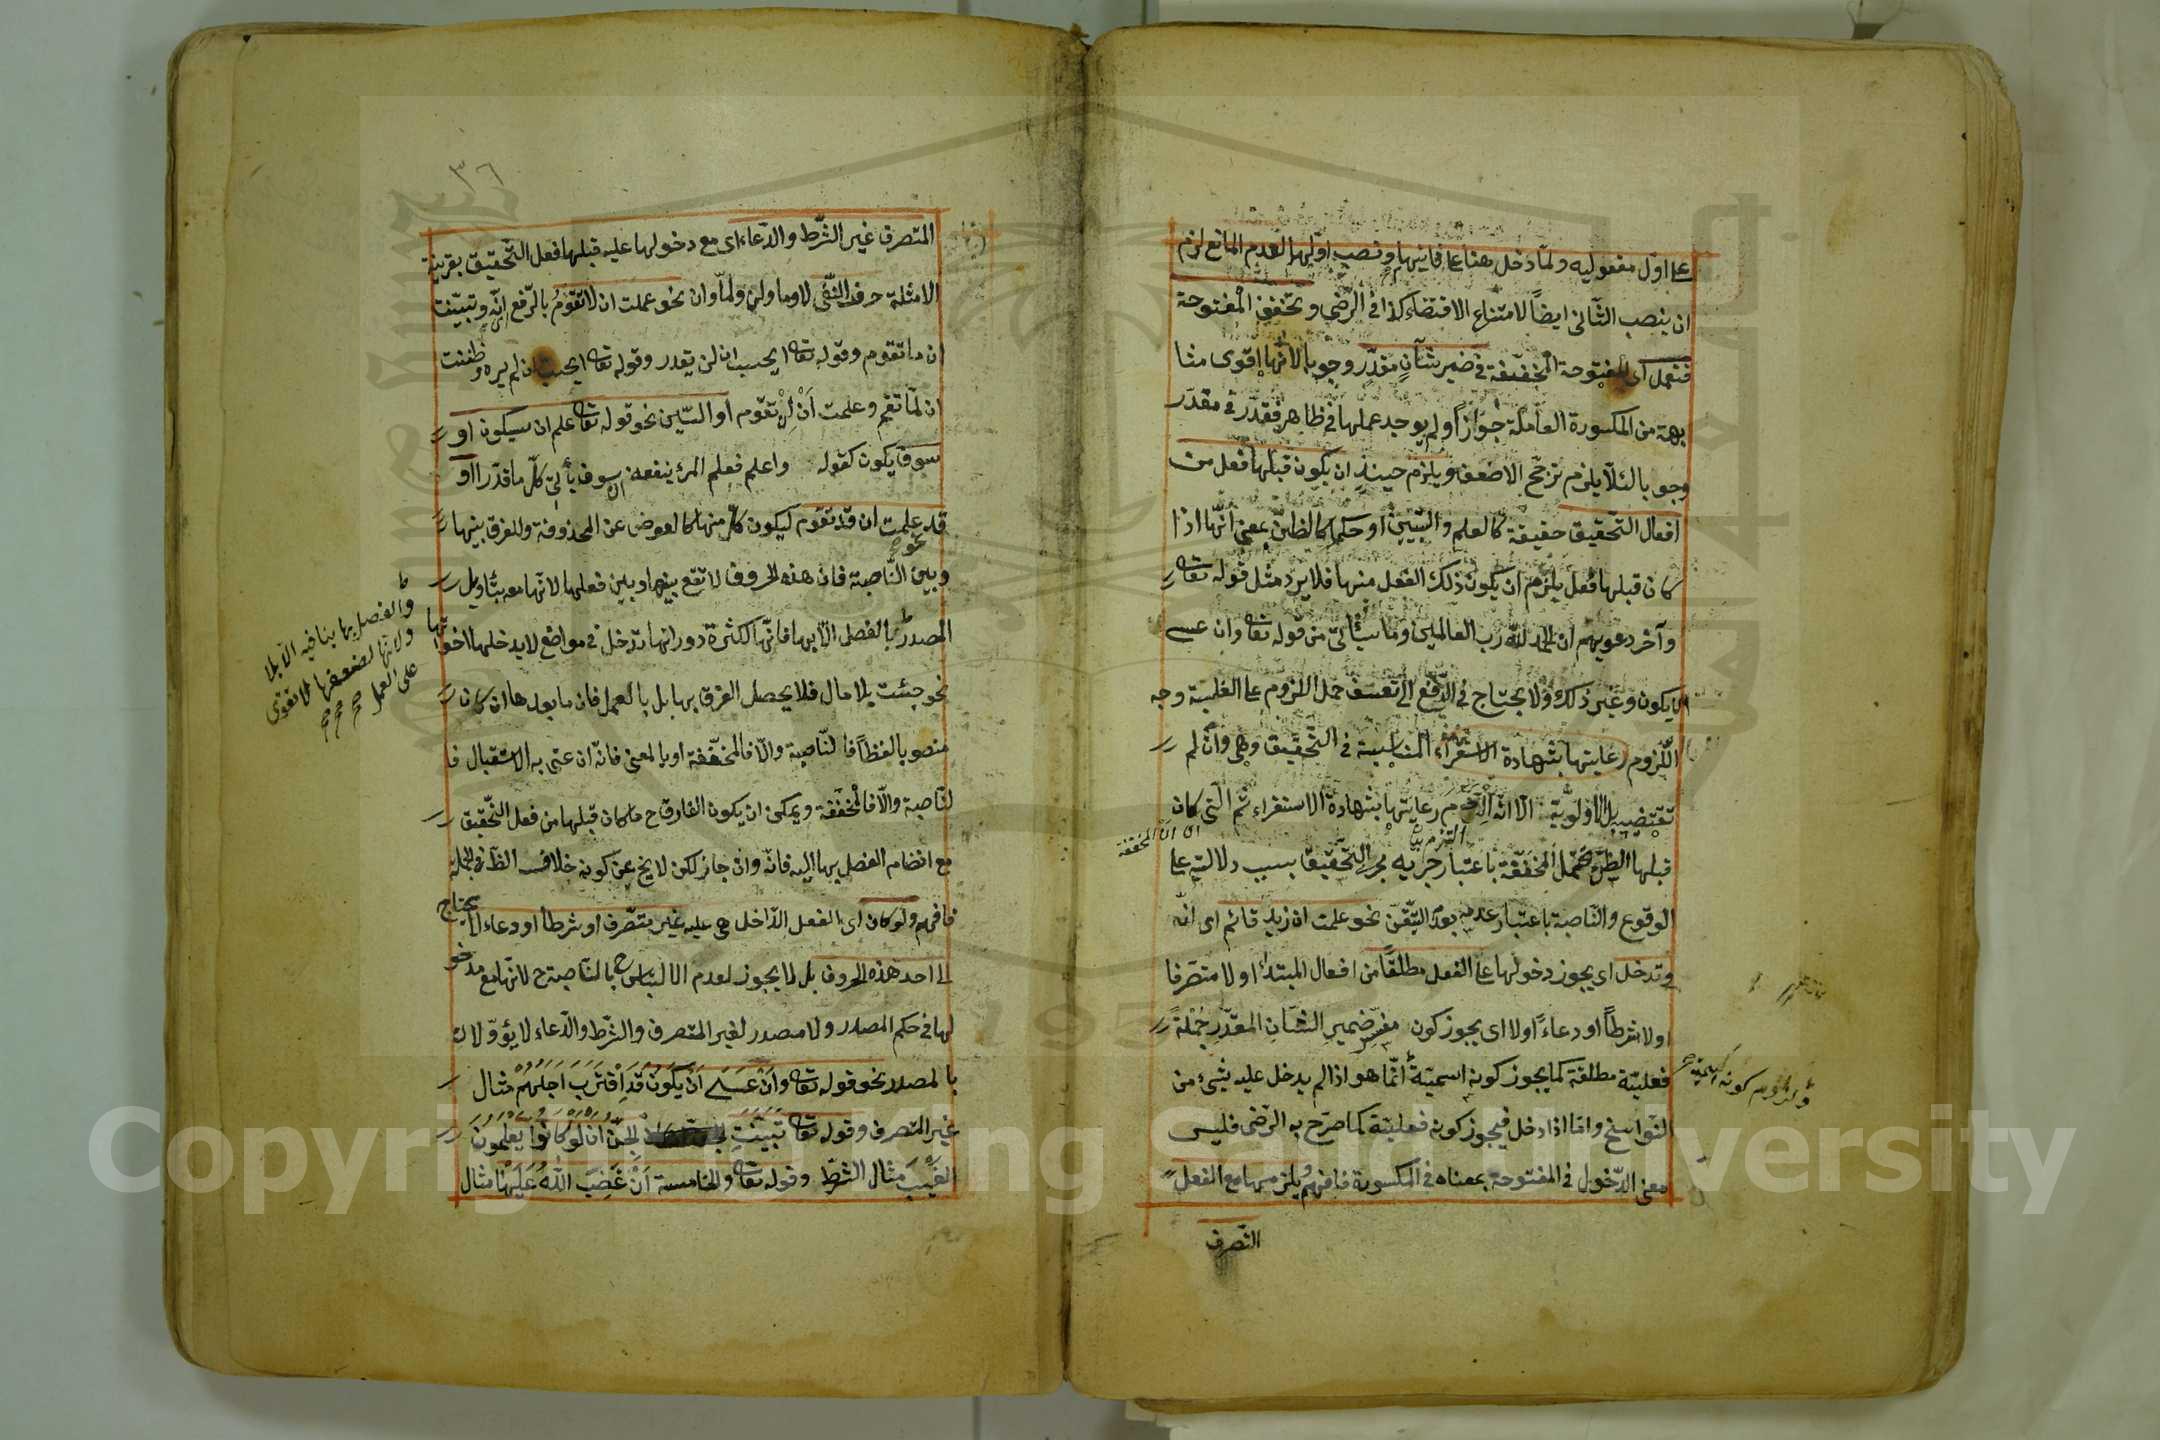 على اول مفعوليه ولما دخل هنا على ثانيهما ونصب اولهما لعدم المانع لزم
ان ينصب الثانى ايضاً لامتناع الاقتضاء كذا فى الرضى وتخفف المفتوحة
فتعمل اى المفتوحة المخففة فى ضمير شأن مقدر وجوبا لانها اقوى مشا
بهة من المكسورة العاملة جوازاً ولم يوجد عملها فى ظاهر فقدر فى مقدر
وجوبا لئلا يلزم ترجح الاضعف ويلزم حينئذ ان يكون قبلها فعل من
افعال التحقيق حقيقة كالعلم والتبيين او حكما كالظن بمعنى انها اذا
كان قبلها فعل يلزم ان يكون ذلك الفعل منها فلا يرد مثل قوله تعالى
وآخر دعويهم ان الحمد لله رب العالمين وما سيأتى من قوله تعالى وان عسى
ان يكون وغير ذلك ولا يحتاج فى الدفع الى تعسف حمل اللزوم على الغلبة وجه
اللزوم رعايتها بشهادة الاستقراء المناسبة فى التحقيق وهى وان لم
تقتضيه بل الاولوية الا انه التزم رعايتها بشهادة الاستقراء ثم التى كان
التزم
ان المخففة
قبلها الظن تحتمل المخففة باعتبار جريه مجرى التحقيق بسبب دلالته على
الوقوع والناصبة باعتبار عدم التيقن نحو علمت ان زيد قائم اى انه
وتدخل اى يجوز دخولها على الفعل مطلقاً من افعال المبتدأ او لا متصرفا
او لا شرطاً او دعاءً او لا اى يجوز كون مفسر ضمير الشان المقدر جملة
فعلية مطلقة كما يجوز كونه اسمية انما هو اذا لم يدخل عليه شئ من
النواسخ واما اذا دخل فيجوز كونه فعلية كما صرح به الرضى فليس
معنى الدخول فى المفتوحة بمعناه فى المكسورة فافهم يلزمها مع الفعل
التصرف
٣٦
المتصرف غير الشرط والدعاء اى مع دخولها عليه قبلها فعل التحقيق بقرينة
الامثلة حرف النفى لا وما ولن ولم ولما وان نحو علمت ان لا تقوم بالرفع اى انه وتبينت
ان ما تقوم وقوله تعالى ايحسب ان لن يقدر وقوله تعالى ايحسب ان لم يره وظننت
ان لما تقم وعلمت ان ان تقوم او السين نحو قوله تعالى علم ان سيكون او
سوف يكون كقوله واعلم فعلم المرء ينفعه ان سوف يأتى كل ما قدرا او
قد علمت ان قد تقوم ليكون كل منها كالعوض عن المحذوفة وللفرق بينها
نحو
وبين الناصبة فان هذه الحروف لا تقع بينها وبين فعلها لانها معه بتأويل
المصدر بالفصل الا بها فانها لكثرة دورانها تدخل فى مواضع لا يدخلها اخواتها
نحو جئت بلا مال فلا يحصل الفرق بها بل بالعمل فان ما بعدها ان كان
منصوبا لفظاً فالناصبة والا فالمخففة او بالمعنى فانه ان عنى به الاستقبال فا
لناصبة والا فالمخففة ويمكن ان يكون الفارق ح ما كان قبلها من فعل التحقيق
مع انضمام الفصل بها اليه فانه وان جاز لكن لا يخ عن كونه خلاف الظاهر فى الجملة
فافهم ولو كان اى الفعل الداخل هى عليه غير متصرف او شرطاً او دعاء لا يحتاج
الى احد هذه الحروف بل لا يجوز لعدم الالتباس ح بالناصبة ح لانها مع مدخو
لها فى حكم المصدر ولا مصدر لغير المتصرف والشرط والدعاء لا يؤولان
بالمصدر نحو قوله تعالى وَاَنْ عَسَى اَنْ يَكُونَ قَدِ اقْتَرَبَ اَجَلُهُمْ مثال
غير المتصرف وقوله تعالى تَبَيَّنَتِ الجِنُّ اَنْ لَوْ كَانُوا يَعْلَمُونَ
الغَيْبَ مثال الشرط وقوله تعالى والخامسة اَنْ غَضِبَ اللهُ عَلَيْهَا مثال
والفصل بها ينافيه الا بلا
ولانها لضعفها لا تقوى
على العمل
Copyright © King Saud University